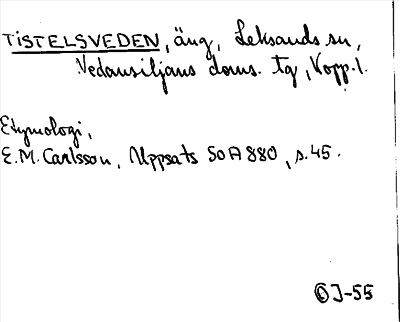 TISTELSVEDEN, äng, Leksands sn,
Nedansiljans doms. tg, Kopp. l.
Etymologi,
E.M. Carlsson, Uppsats SOA 880, s. 45.
ÖJ-55